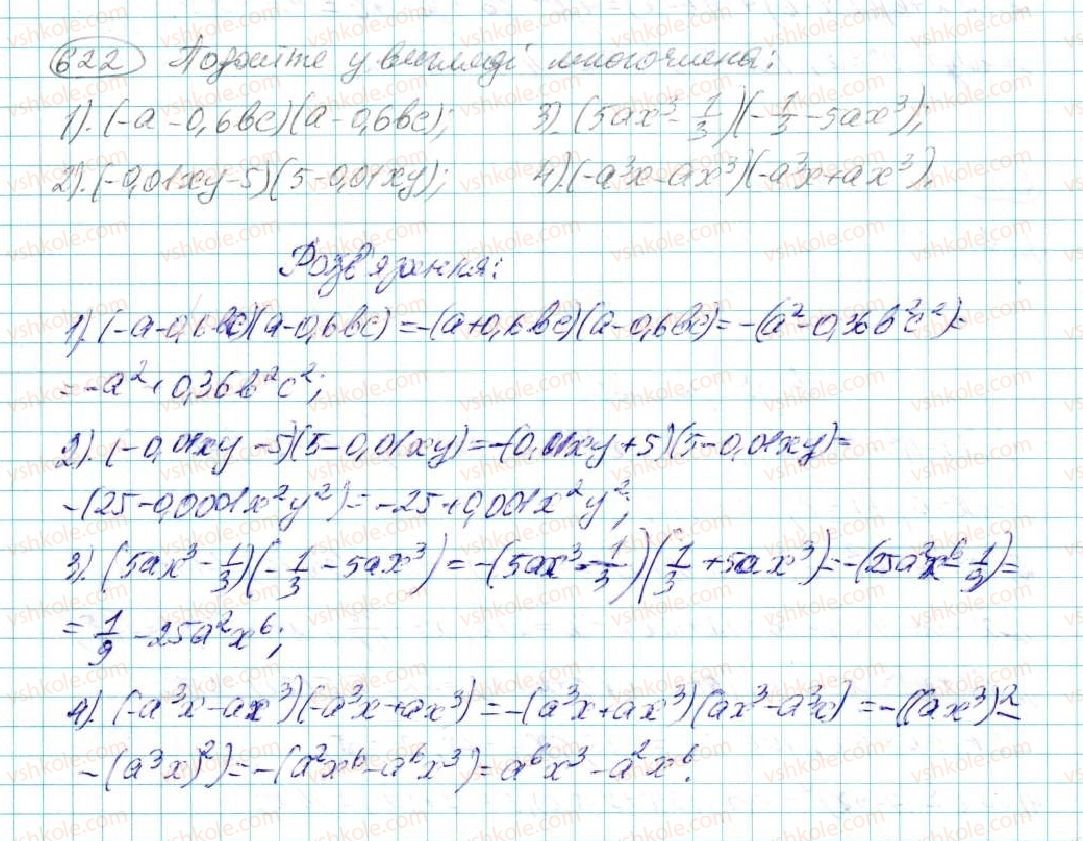 622 Подайте у вигляді многочлена:
1). (-a - 0,6bc)(a - 0,6bc); 3). (5ax³ - 1/3)(-1/3 - 5ax³);
2). (-0,01xy - 5)(5 - 0,01xy); 4). (-a³x - ax³)(-a³x + ax³).
Розв'язання:
1). (-a - 0,6bc)(a - 0,6bc) = -(a + 0,6bc)(a - 0,6bc) = -(a² - 0,36b²c²) =
= -a² + 0,36b²c²;
2). (-0,01xy - 5)(5 - 0,01xy) = -(0,01xy + 5)(5 - 0,01xy) =
-(25 - 0,0001x²y²) = -25 + 0,001x²y²;
3). (5ax³ - 1/3)(-1/3 - 5ax³) = -(5ax³ - 1/3)(1/3 + 5ax³) = -(25a²x⁶ - 1/9) =
= 1/9 - 25a²x⁶;
4). (-a³x - ax³)(-a³x + ax³) = -(a³x + ax³)(ax³ - a³x) = -((ax³)² -
- (a³x)²) = -(a²x⁶ - a⁶x³) = a⁶x³ - a²x⁶.